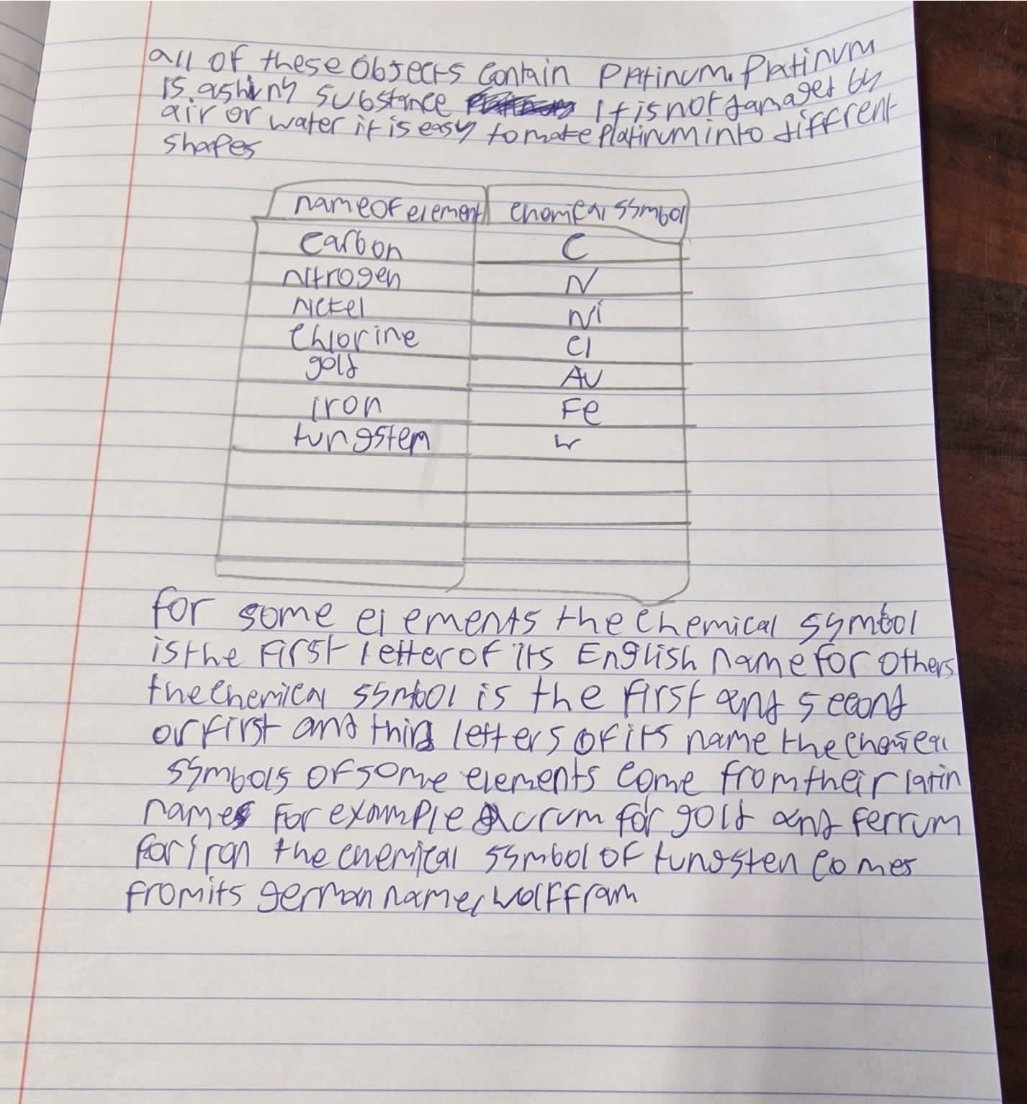 all of these objects contain Platinum. Platinum
is a shiny substance It is not damaged by
air or water it is easy to make Platinum into diffrent
shapes
name of element chemical symbol
carbon C
nitrogen N
nickel Ni
chlorine Cl
gold Au
iron Fe
tungstem
for some elements the chemical symbol
is the first letter of its English name for others
the chemical symbol is the first and second
or first and third letters of its name the chemical
symbols of some elements come from their latin
names For example Acrum for gold and ferrum
for iron the chemical symbol of tungsten comes
from its german name, wolffram